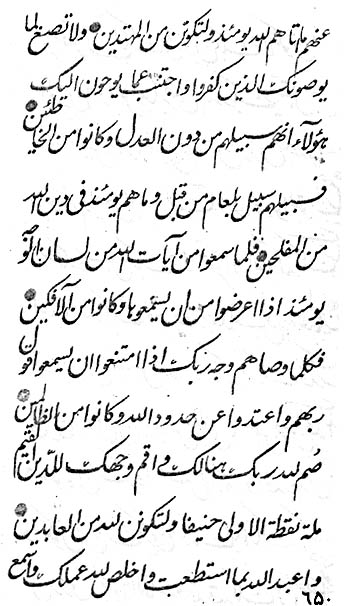 عنهم ما اتاهم الله يومئذ ولتكونن من المهتدين ولا تصغ لما
يوصونك الذين كفروا واجتنب عما يوحون اليك
هؤلاء انهم سبيلهم من دون العدل وكانوا من الخاطئين
فسبيلهم سبيل بلعام من قبل وما هم يومئذ فى دين الله
من المفلحين فلما سمعوا من آيات الله من لسان
يومئذ اذا اعرضوا من ان يسمعوها وكانوا من الآفكين
فكلما وصاهم وجه ربك اذا امتنعوا ان يسمعوا قول
ربهم واعتدوا عن حدود الله وكانوا من الظالمين
صم لله ربك هنالك واقم وجهك للدين القيم
ملة نقطة الاولى حنيفا ولتكونن لله من العابدين
واعبد الله بما استطعت واخلص لله عملك واسمع
٦٥٠